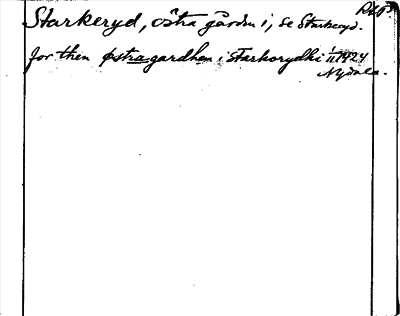 Starkeryd, östra gården i, se Starkeryd.
for then østragardhen i Starkorydhi 1/11 1424
Nydala.